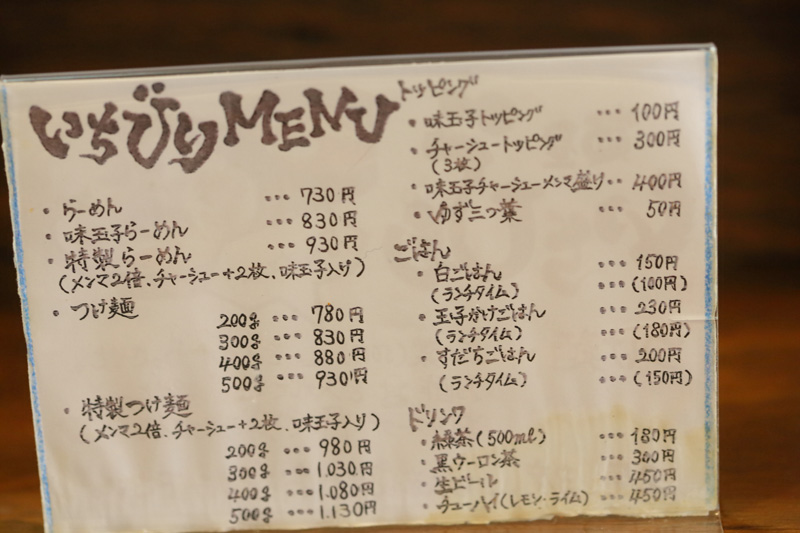 いちびりMENU
・らーめん ・・・730円
・味玉子らーめん ・・・830円
・特製らーめん ・・・930円
(メンマ2倍、チャーシュー+2枚、味玉子入り)
・つけ麺 200g ・・・780円
300g ・・・830円
400g ・・・880円
500g ・・・930円
・特製つけ麺
(メンマ2倍、チャーシュー+2枚、味玉子入り)
200g ・・・980円
300g ・・・1.030円
400g ・・・1.080円
500g ・・・1.130円
トッピング
・味玉子トッピング ・・・100円
・チャーシュートッピング ・・・300円
(3枚)
・味玉子チャーシューメンマ盛り ・・・400円
・ゆず三つ葉 ・・・50円
ごはん
・白ごはん ・・・150円
(ランチタイム) ・・・(100円)
・玉子かけごはん ・・・230円
(ランチタイム) ・・・(180円)
・すだちごはん ・・・200円
(ランチタイム) ・・・(150円)
ドリンク
・緑茶(500ml) ・・・180円
・黒ウーロン茶 ・・・300円
・生ビール ・・・450円
・チューハイ(レモン・ライム) ・・・450円